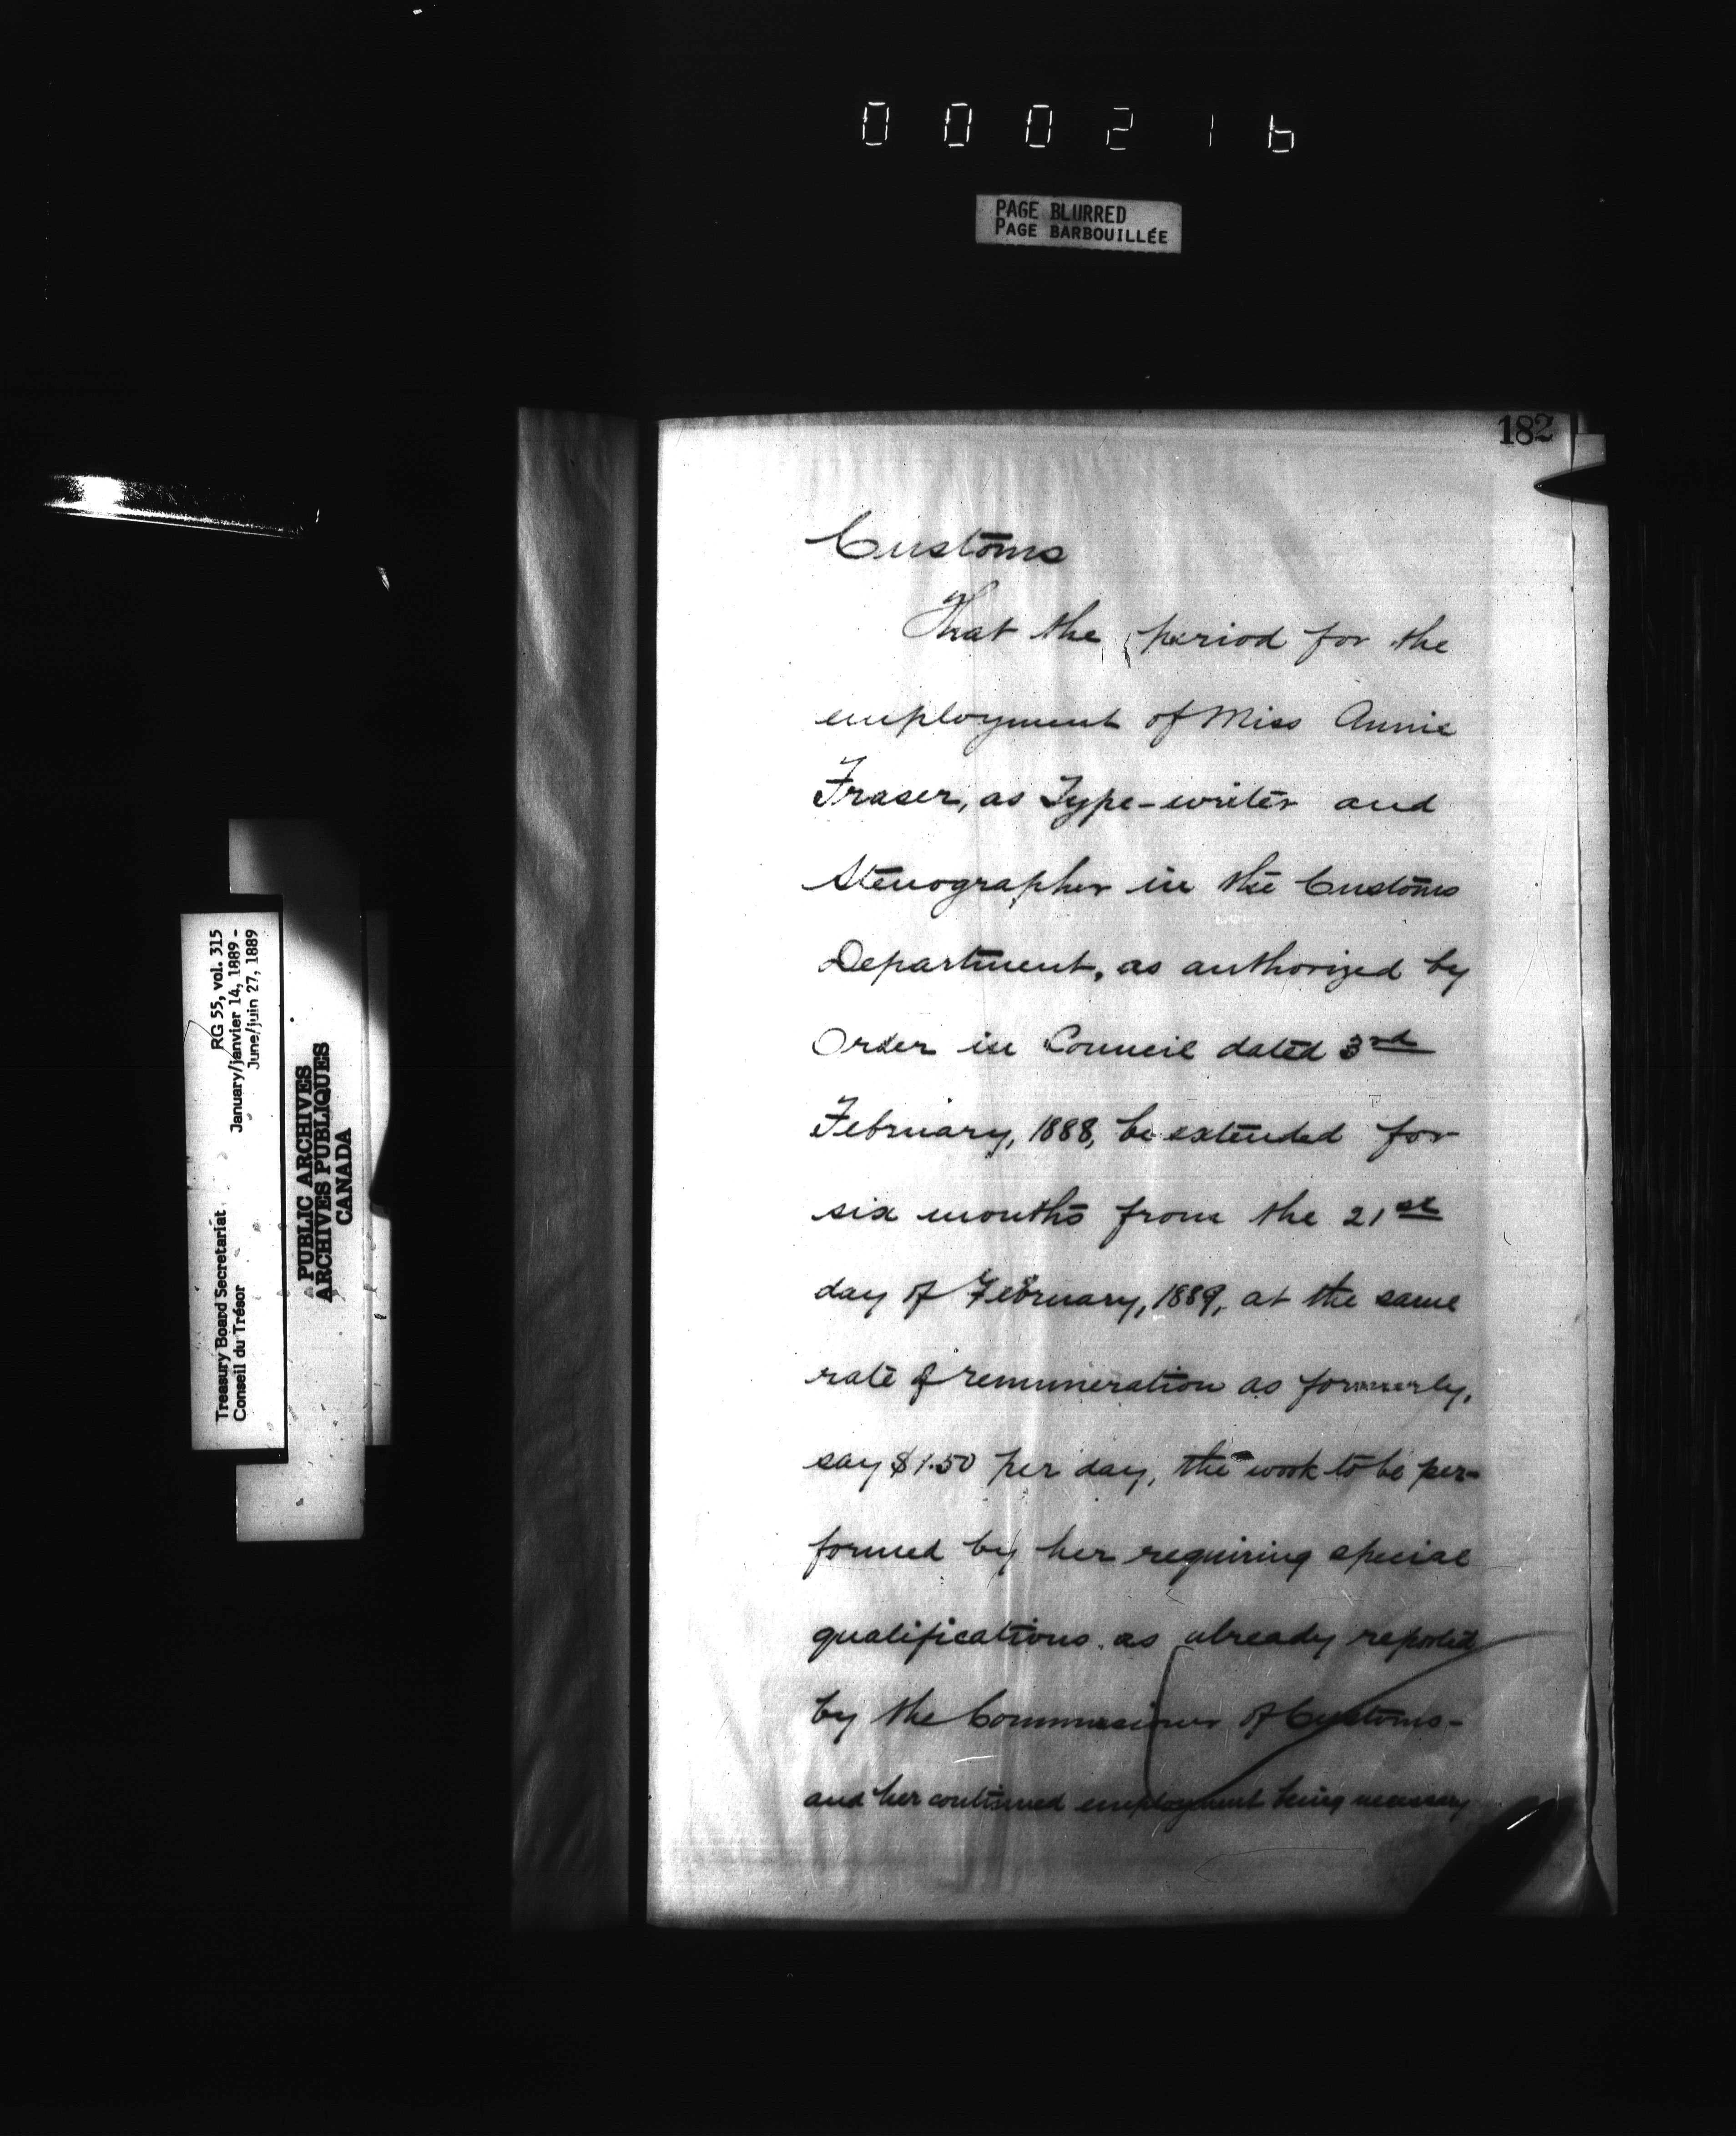 000216
PAGE BLURRED
PAGE BARBOUILLÉE
182
Customs
That the period for the
employment of Miss Annie
Fraser, as Type-writer and
Stenographer in the Customs
Department, as authorized by
Order in Council dated 3rd
February, 1888, be extended for
six months from the 21st
day of February, 1889, at the same
rate of remuneration as formerly,
say $1.50 per day, the work to be per-
formed by her requiring special
qualifications as already reported
by the Commissioner of Customs-
and her continued employment being necessary
RG 55, vol. 315
January/janvier 14, 1889 -
June/juin 27, 1889
Treasury Board Secretariat
Conseil du Trésor
PUBLIC ARCHIVES
ARCHIVES PUBLIQUES
CANADA